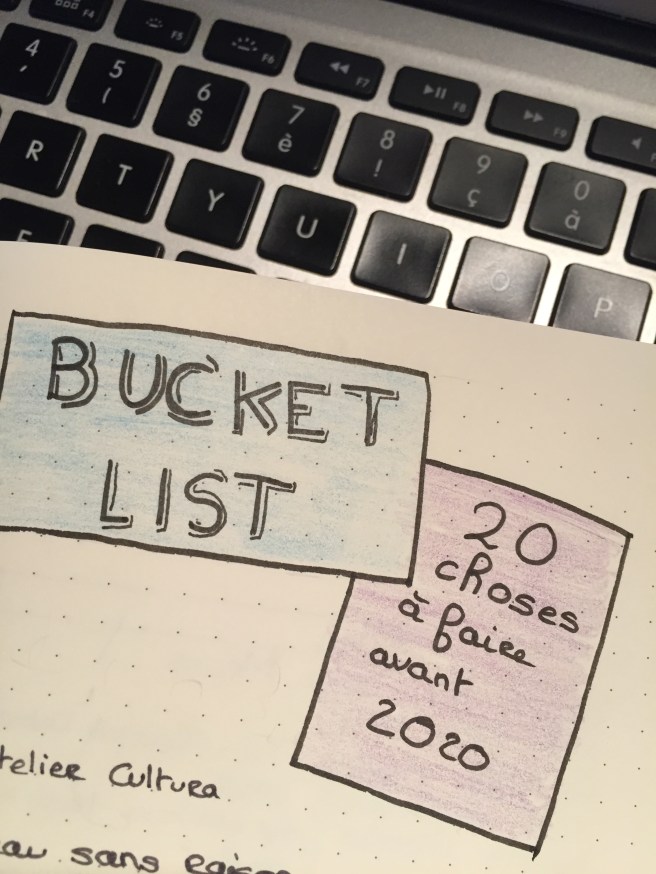 F4 F5 F6 F7 F8 F9
4 5 6 7 8 9 0
' ( § è ! ç à
R T Y U I O P
BUCKET
LIST
20
choses
à faire
avant
2020
telier Cultura
sans